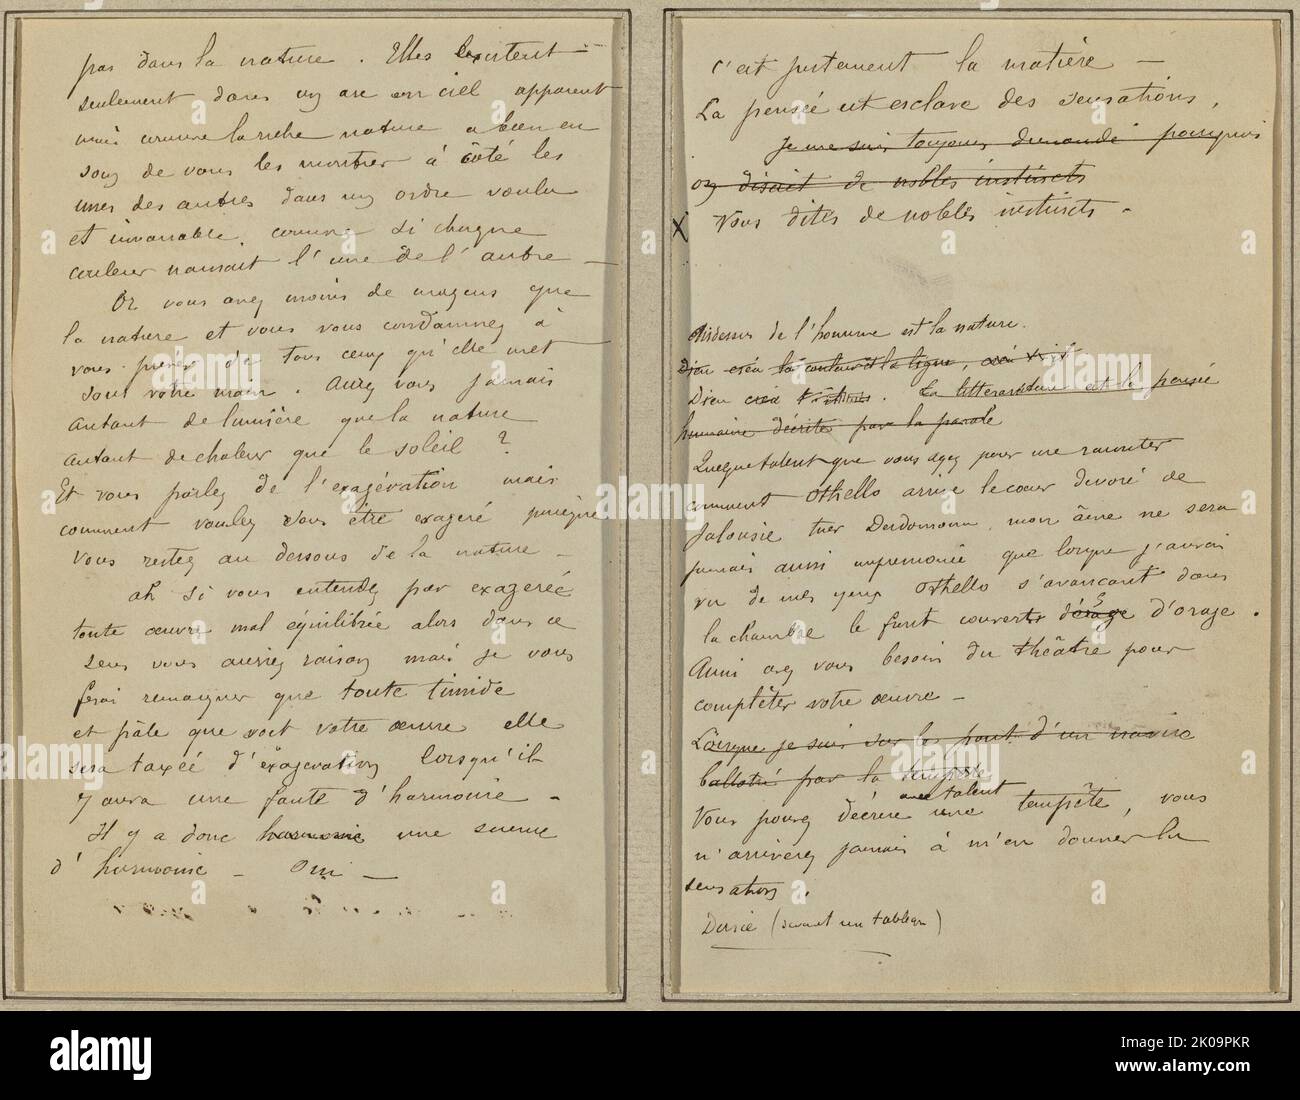 pas dans la nature. Elles existent
seulement dans un arc en ciel apparent
mais comme la riche nature a bien eu
soin de vous les montrer à côté les
unes des autres dans un ordre voulu
et invariable. comme si chaque
couleur naissait l'une de l'autre —
Or vous avez moins de moyens que
la nature et vous vous condamnez à
vous priver de tous ceux qu'elle met
sous votre main. Aurez vous jamais
autant de lumière que la nature
autant de chaleur que le soleil ?
Et vous parlez de l'exagération mais
comment voulez vous être exagéré puisque
vous restez au dessous de la nature —
ah si vous entendez par exagérée
toute œuvre mal équilibrée alors dans ce
sens vous auriez raison mais je vous
ferai remarquer que toute timide
et pâle que soit votre œuvre elle
sera taxée d'exagération lorsqu'il
y aura une faute d'harmonie —
Il y a donc harmonie une science
d'harmonie — Oui —
c'est justement la matière —
La pensée est esclave des sensations,
Je me suis toujours demandé pourquoi
on disait de nobles instincts
X Vous dites de nobles instincts —
Audessus de l'homme est la nature.
Dieu créa la couleur et la ligne, créa
Dieu créa. La littérature est la pensée
humaine décrite par la parole
Quelque talent que vous ayez pour me raconter
comment Othello arrive le cœur dévoré de
jalousie tuer Desdemona, mon âme ne sera
jamais aussi impressionnée que lorsque j'aurai
vu de mes yeux Othello s'avançant dans
la chambre le front couvert d'orage.
Aussi avez vous besoin du théâtre pour
complèter votre œuvre —
Lorsque je suis sur le pont d'un navire
ballotté par la tempête
avec talent
Vous pouvez décrire une tempête, vous
n'arriverez jamais à m'en donner la
sensation.
(devant un tableau)
alamy
Image ID: 2K09PKR
www.alamy.com